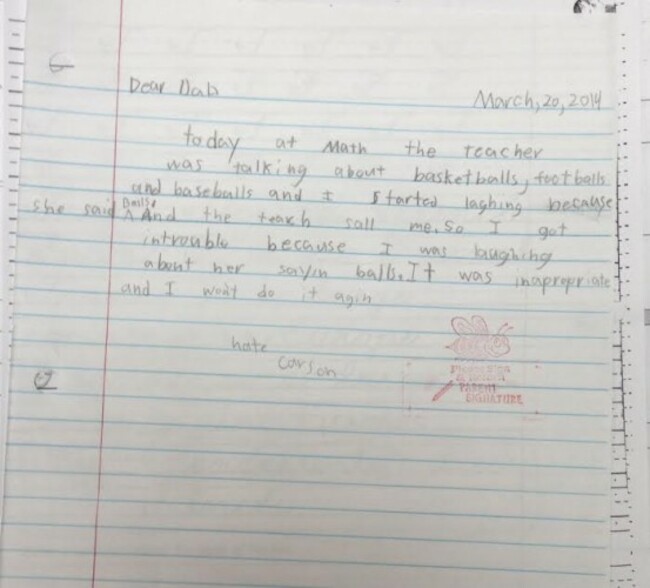 Dear Dab
March, 20, 2014
today at Math the teacher
was talking about basketballs, footballs
and baseballs and I started laghing because
she said Balls. And the teach sall me. So I got
introuble because I was laughing
about her sayin balls. It was inapropriate
and I wont do it agin
hate
Carson
Please Sign
& Return
PARENT
SIGNATURE